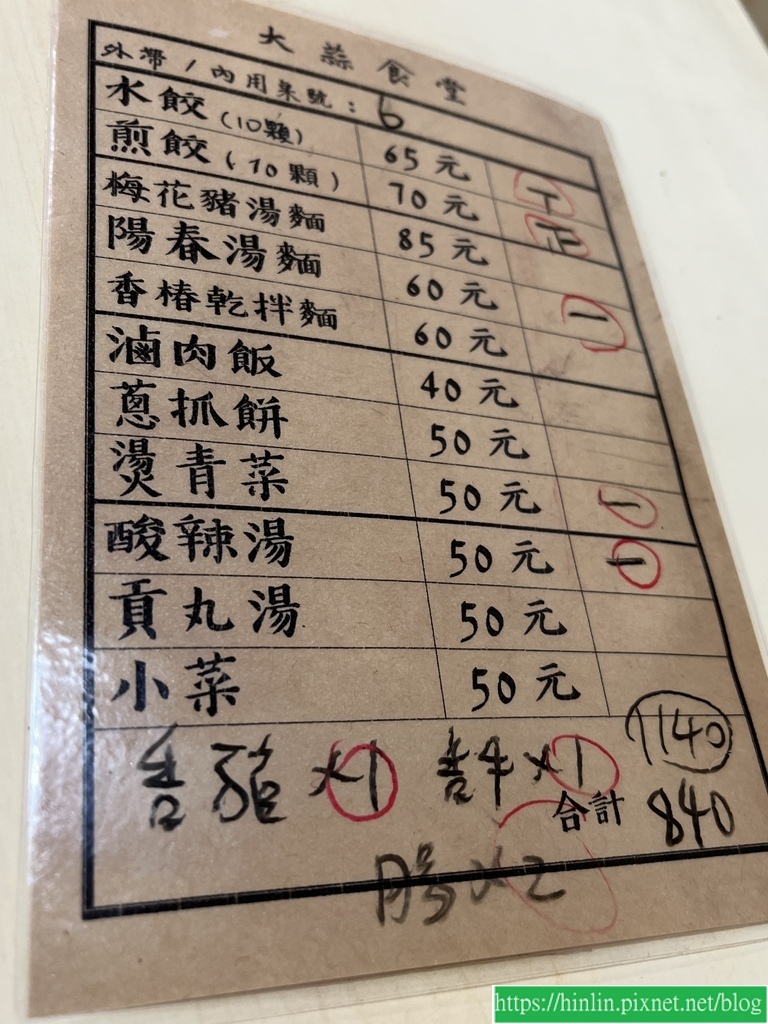 大蒜食堂
外帶/內用桌號：6
水餃(10顆) 65元 T
煎餃(10顆) 70元 正
梅花豬湯麵 85元
陽春湯麵 60元 一
香椿乾拌麵 60元
滷肉飯 40元
蔥抓餅 50元
燙青菜 50元 一
酸辣湯 50元 一
貢丸湯 50元
小菜 50元
x1 x1 1140
合計 840
x2
https://hinlin.pixnet.net/blog